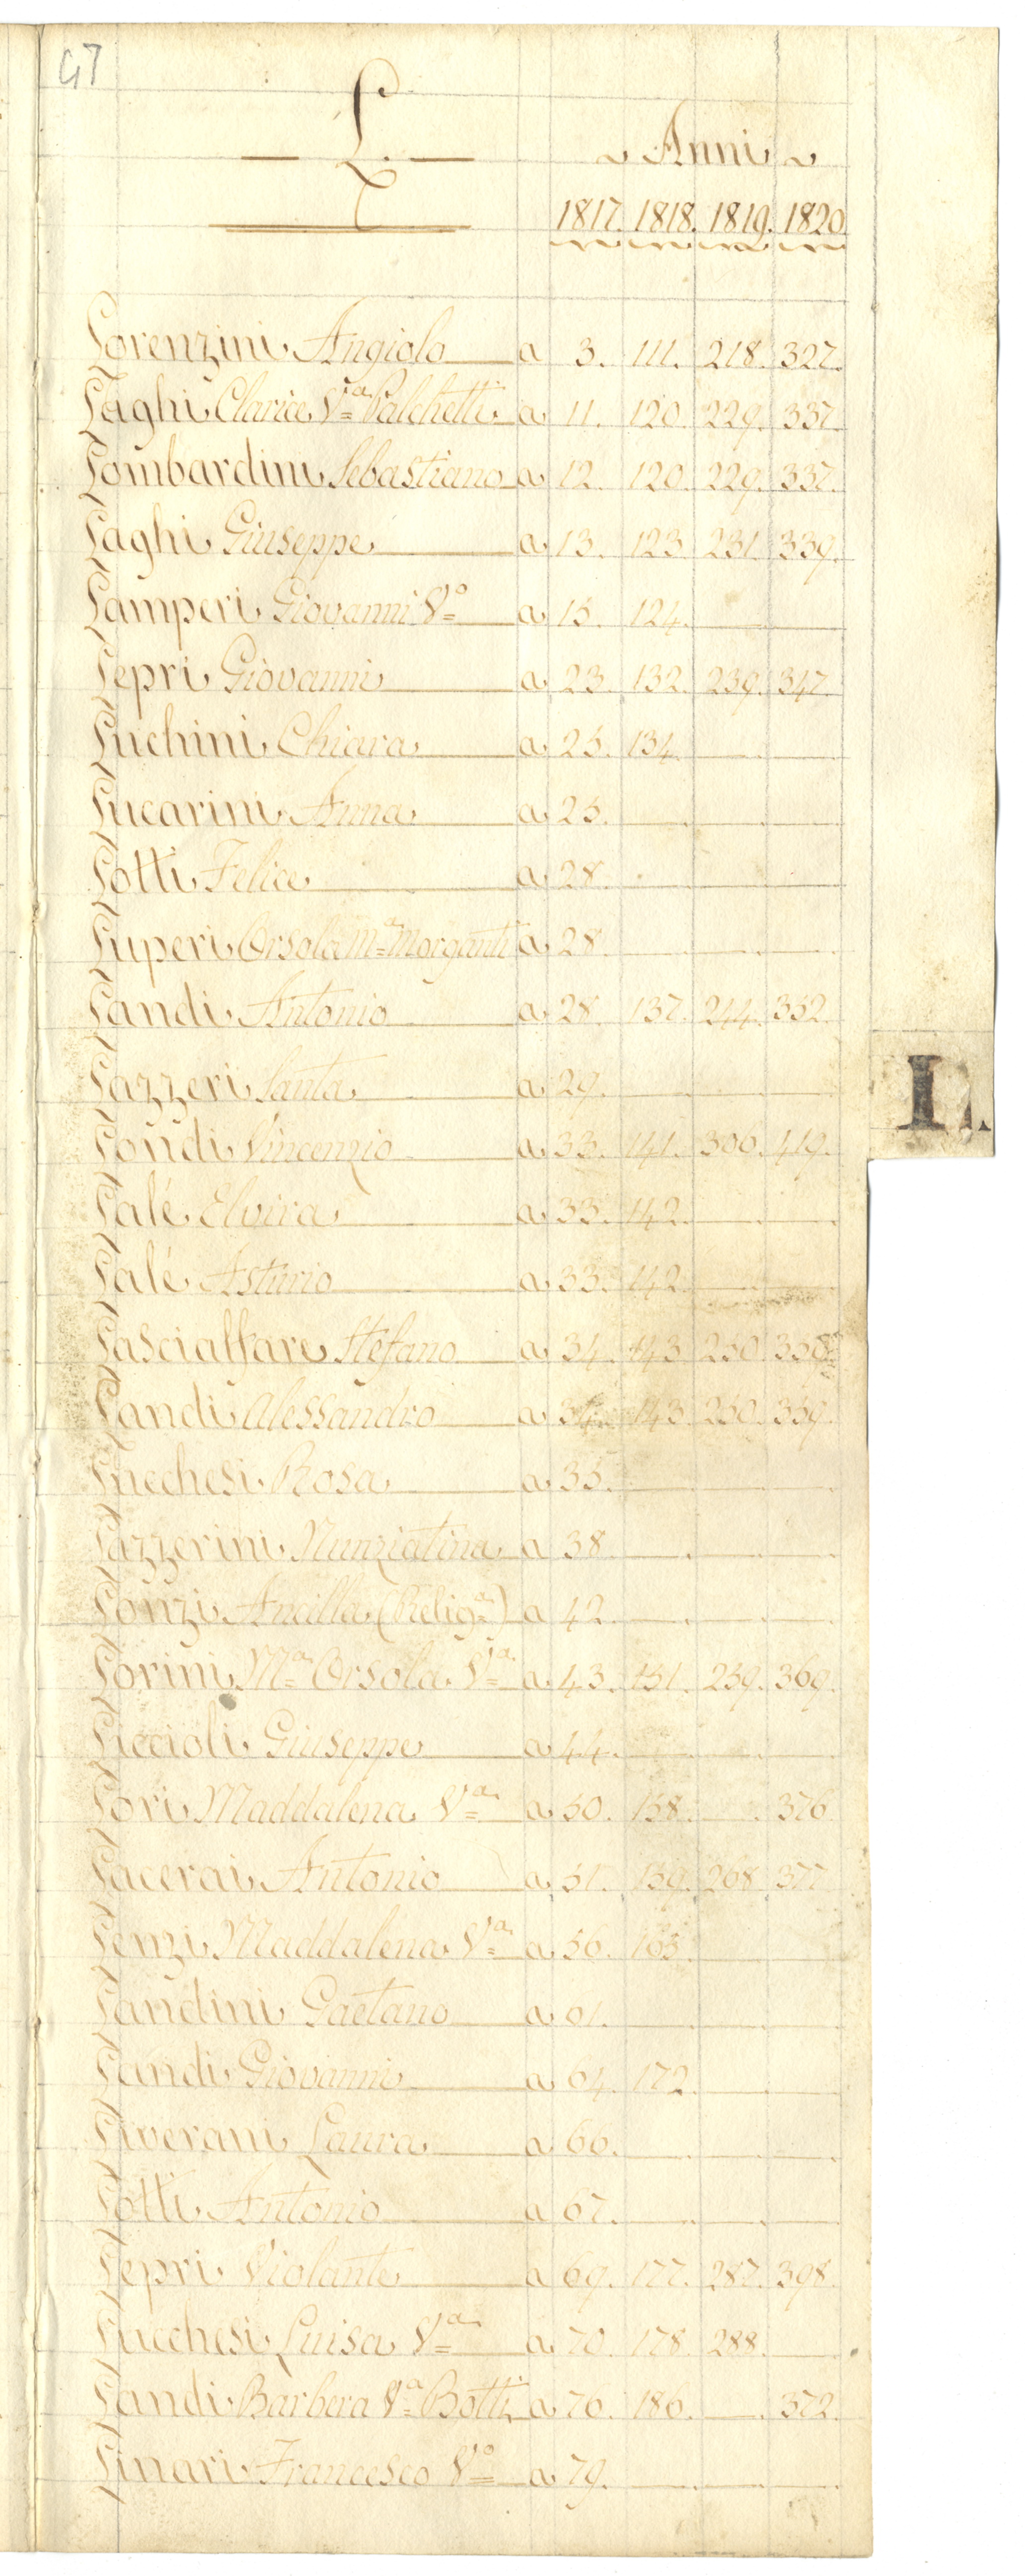 47
L.
Anni
1817. 1818. 1819. 1820
Lorenzini Angiolo a 3. 111. 218. 327.
Laghi Clarice Va. Palchetti a 11. 120. 229. 337.
Lombardini Sebastiano a 12. 120. 229. 337.
Laghi Giuseppe a 13. 123. 231. 339.
Lamperi Giovanni Vo. a 15. 124.
Lepri Giovanni a 23. 132. 239. 347.
Luchini Chiara a 25. 134.
Lucarini Anna a 25.
Lotti Felice a 28.
Luperi Orsola Ma. Morganti a 28.
Landi Antonio a 28. 137. 244. 352.
Lazzeri Santa a 29.
Londi Vincenzio a 33. 141. 300. 419.
Lalè Elvira a 33. 142.
Lalè Asturio a 33. 142.
Lascialfare Stefano a 34. 143. 250. 358.
Landi Alessandro a 34. 143. 250. 359.
Lucchesi Rosa a 35.
Lazzerini Nunziatina a 38.
Lonzi Ancilla (Relig.a) a 42.
Lorini Ma. Orsola Va. a 43. 151. 259. 369.
Liccioli Giuseppe a 44.
Lori Maddalena Va. a 50. 158. 376.
Lacerai Antonio a 51. 159. 268. 377.
Lenzi Maddalena Va. a 56. 163.
Landini Gaetano a 61.
Landi Giovanni a 64. 172.
Liverani Laura a 66.
Lotti Antonio a 67.
Lepri Violante a 69. 177. 287. 398.
Lucchesi Luisa Va. a 70. 178. 288.
Landi Barbera Va. Botti a 76. 186. 372.
Linari Francesco Vo. a 79.
L.